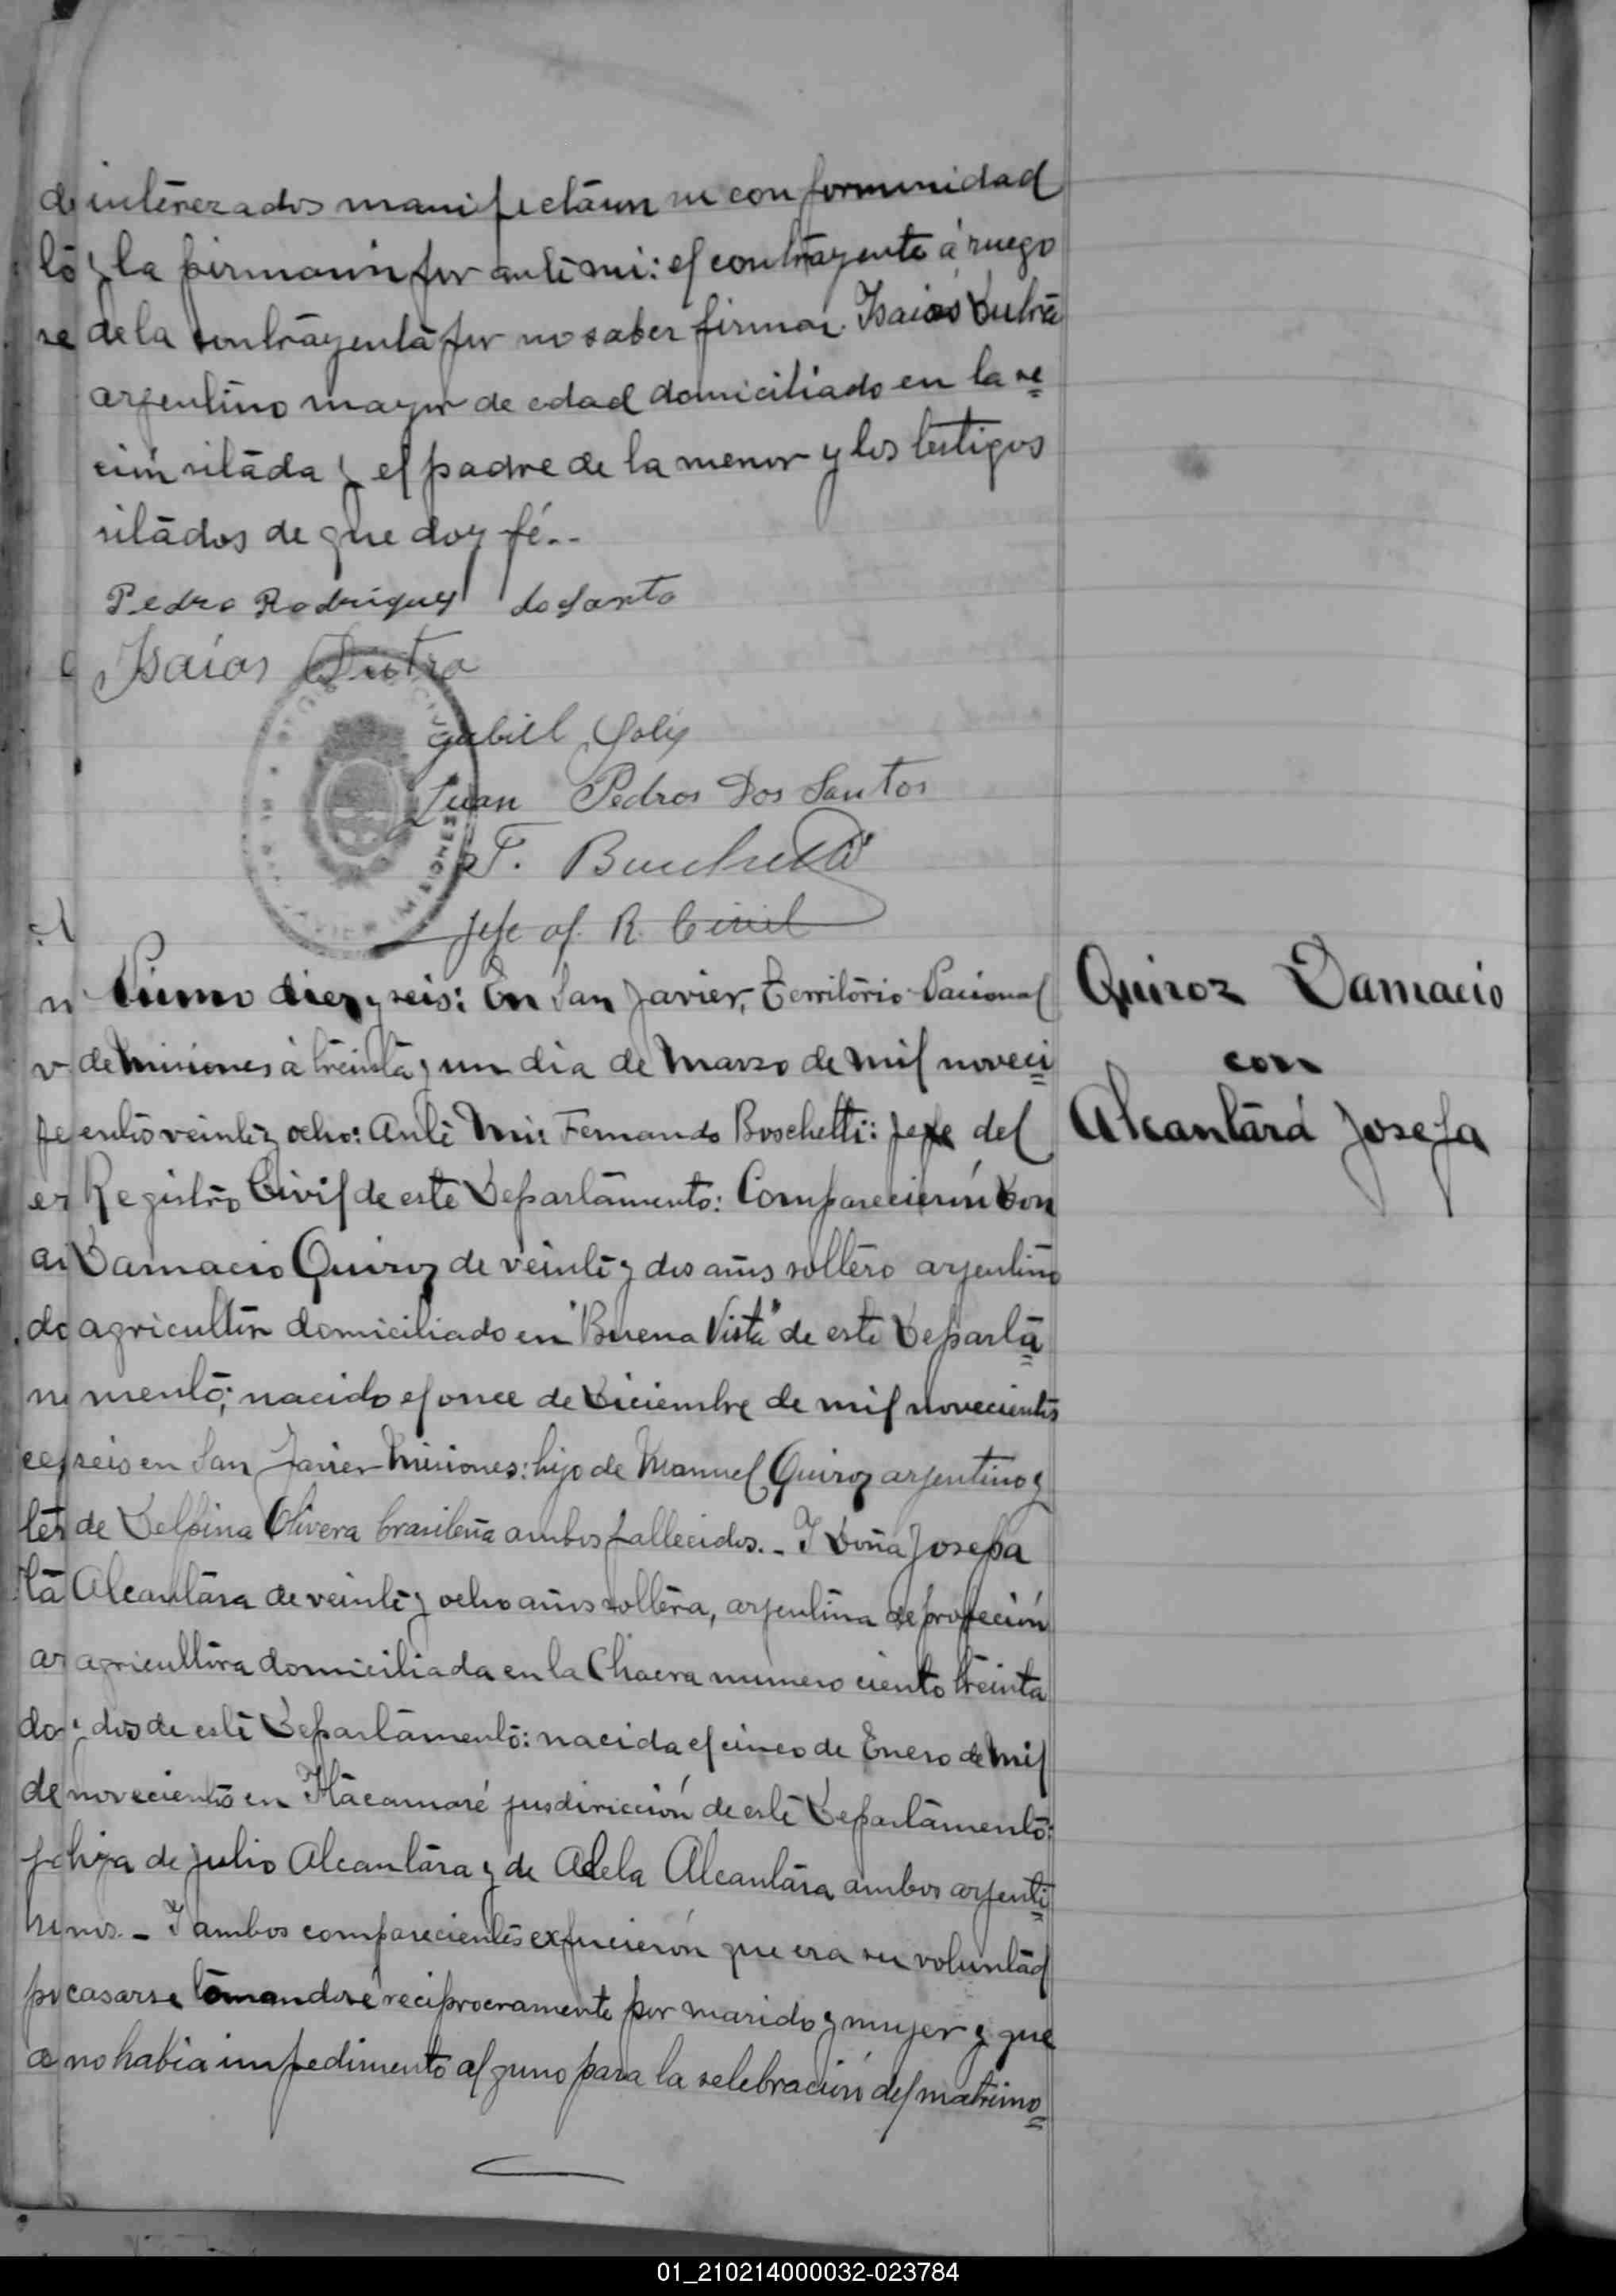 interezados manifestaron su conformidad
y la firmaron por ante mi: el contrayente á ruego
de la contrayenta por no saber firmar Isaias Dutra
argentino mayor de edad domiciliado en la se=
cion sitada y el padre de la menor y los testigos
sitados de que doy fé..
Pedro Rodriguez do Santo
Isaías Dutra
Gabiel Solis
Juan Pedros Dos Santos
F. Boschetti
Jefe of. R. Civil
Numo diez y seis: En San Javier, Territorio Nacional
Quiroz Damacio
de Misiones à treinta y un dia de Marzo de mil noveci=
con
entos veinte y ocho: Ante Mi: Fernando Boschetti: Jefe del
Alcantará Josefa
Registro Civil de este Departamento: Comparecierón Don
Damacio Quiroz de veinte y dos años soltero argentino
agricultor domiciliado en "Buena Vista" de este Departa=
mento; nacido el once de Diciembre de mil novecientos
seis en San Javier Misiones: hijo de Manuel Quiroz argentino y
de Delfina Olivera brasileña ambos fallecidos.- I Doña Josefa
Alcantara de veinte y ocho años soltera, argentina de profeción
agricultora domiciliada en la Chacra numero ciento treinta
y dos de este Departamento: nacida el cinco de Enero de mil
novecientos en Itacamaré jusdiricción de este Departamento:
hija de Julio Alcantara y de Adela Alcantara ambos argenti=
nos.- I ambos comparecientes expucierón que era su voluntad
casarse tomandosé reciprocramente por marido y mujer y que
no habia impedimento alguno para la selebración del matrimo=
01_210214000032-023784